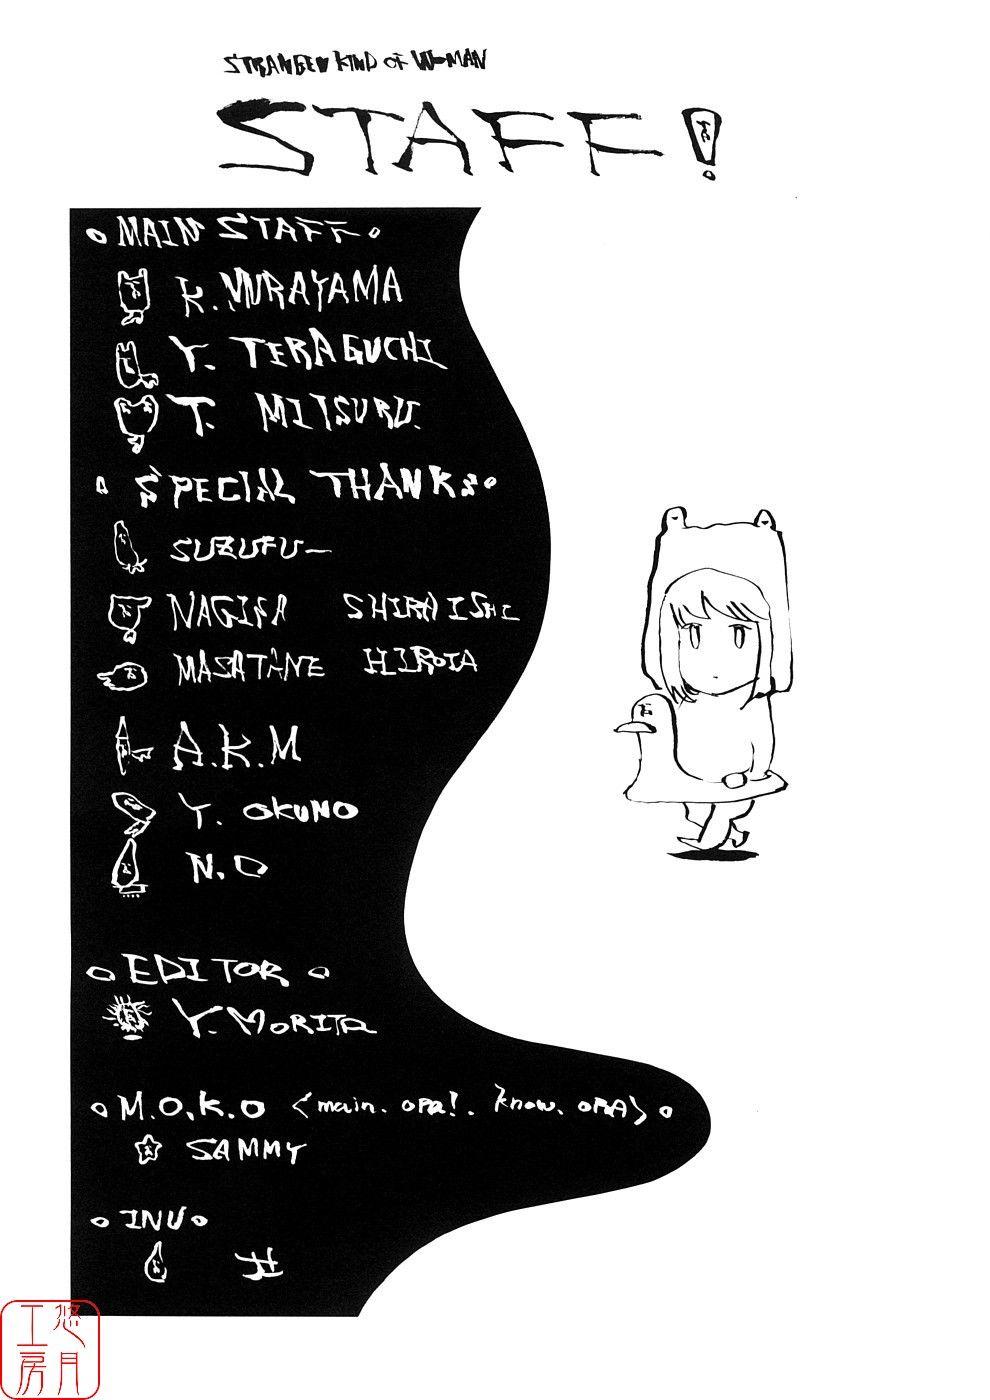 STRANGER KIND OF WOMAN
STAFF!
MAIN STAFF
K. MURAYAMA
Y. TERAGUCHI
T. MITSURU.
SPECIAL THANKS
SUZUFU—
NAGISA SHIRAISHI
MASATANE HIROTA
A.K.M
Y. OKUNO
N.O
EDITOR
Y. MORITA
M.O.K.O <main. OPA!. know. OPA>
SAMMY
INU
井
悠月
工房